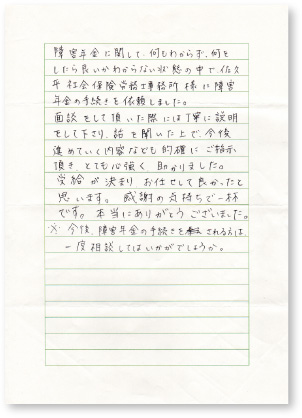 障害年金に関して、何もわからず、何を
したら良いかわからない状態の中で、佐久
平社会保険労務士事務所様に障害
年金の手続きを依頼しました。
面談をして頂いた際には丁寧に説明
をして下さり、話を聞いた上で、今後
進めていく内容なども的確にご指示
頂き、とても心強く、助かりました。
受給が決まり、お任せして良かったと
思います。感謝の気持ちで一杯
です。本当にありがとうございました。
※今後、障害年金の手続きをされる方は、
一度相談してはいかがでしょうか。